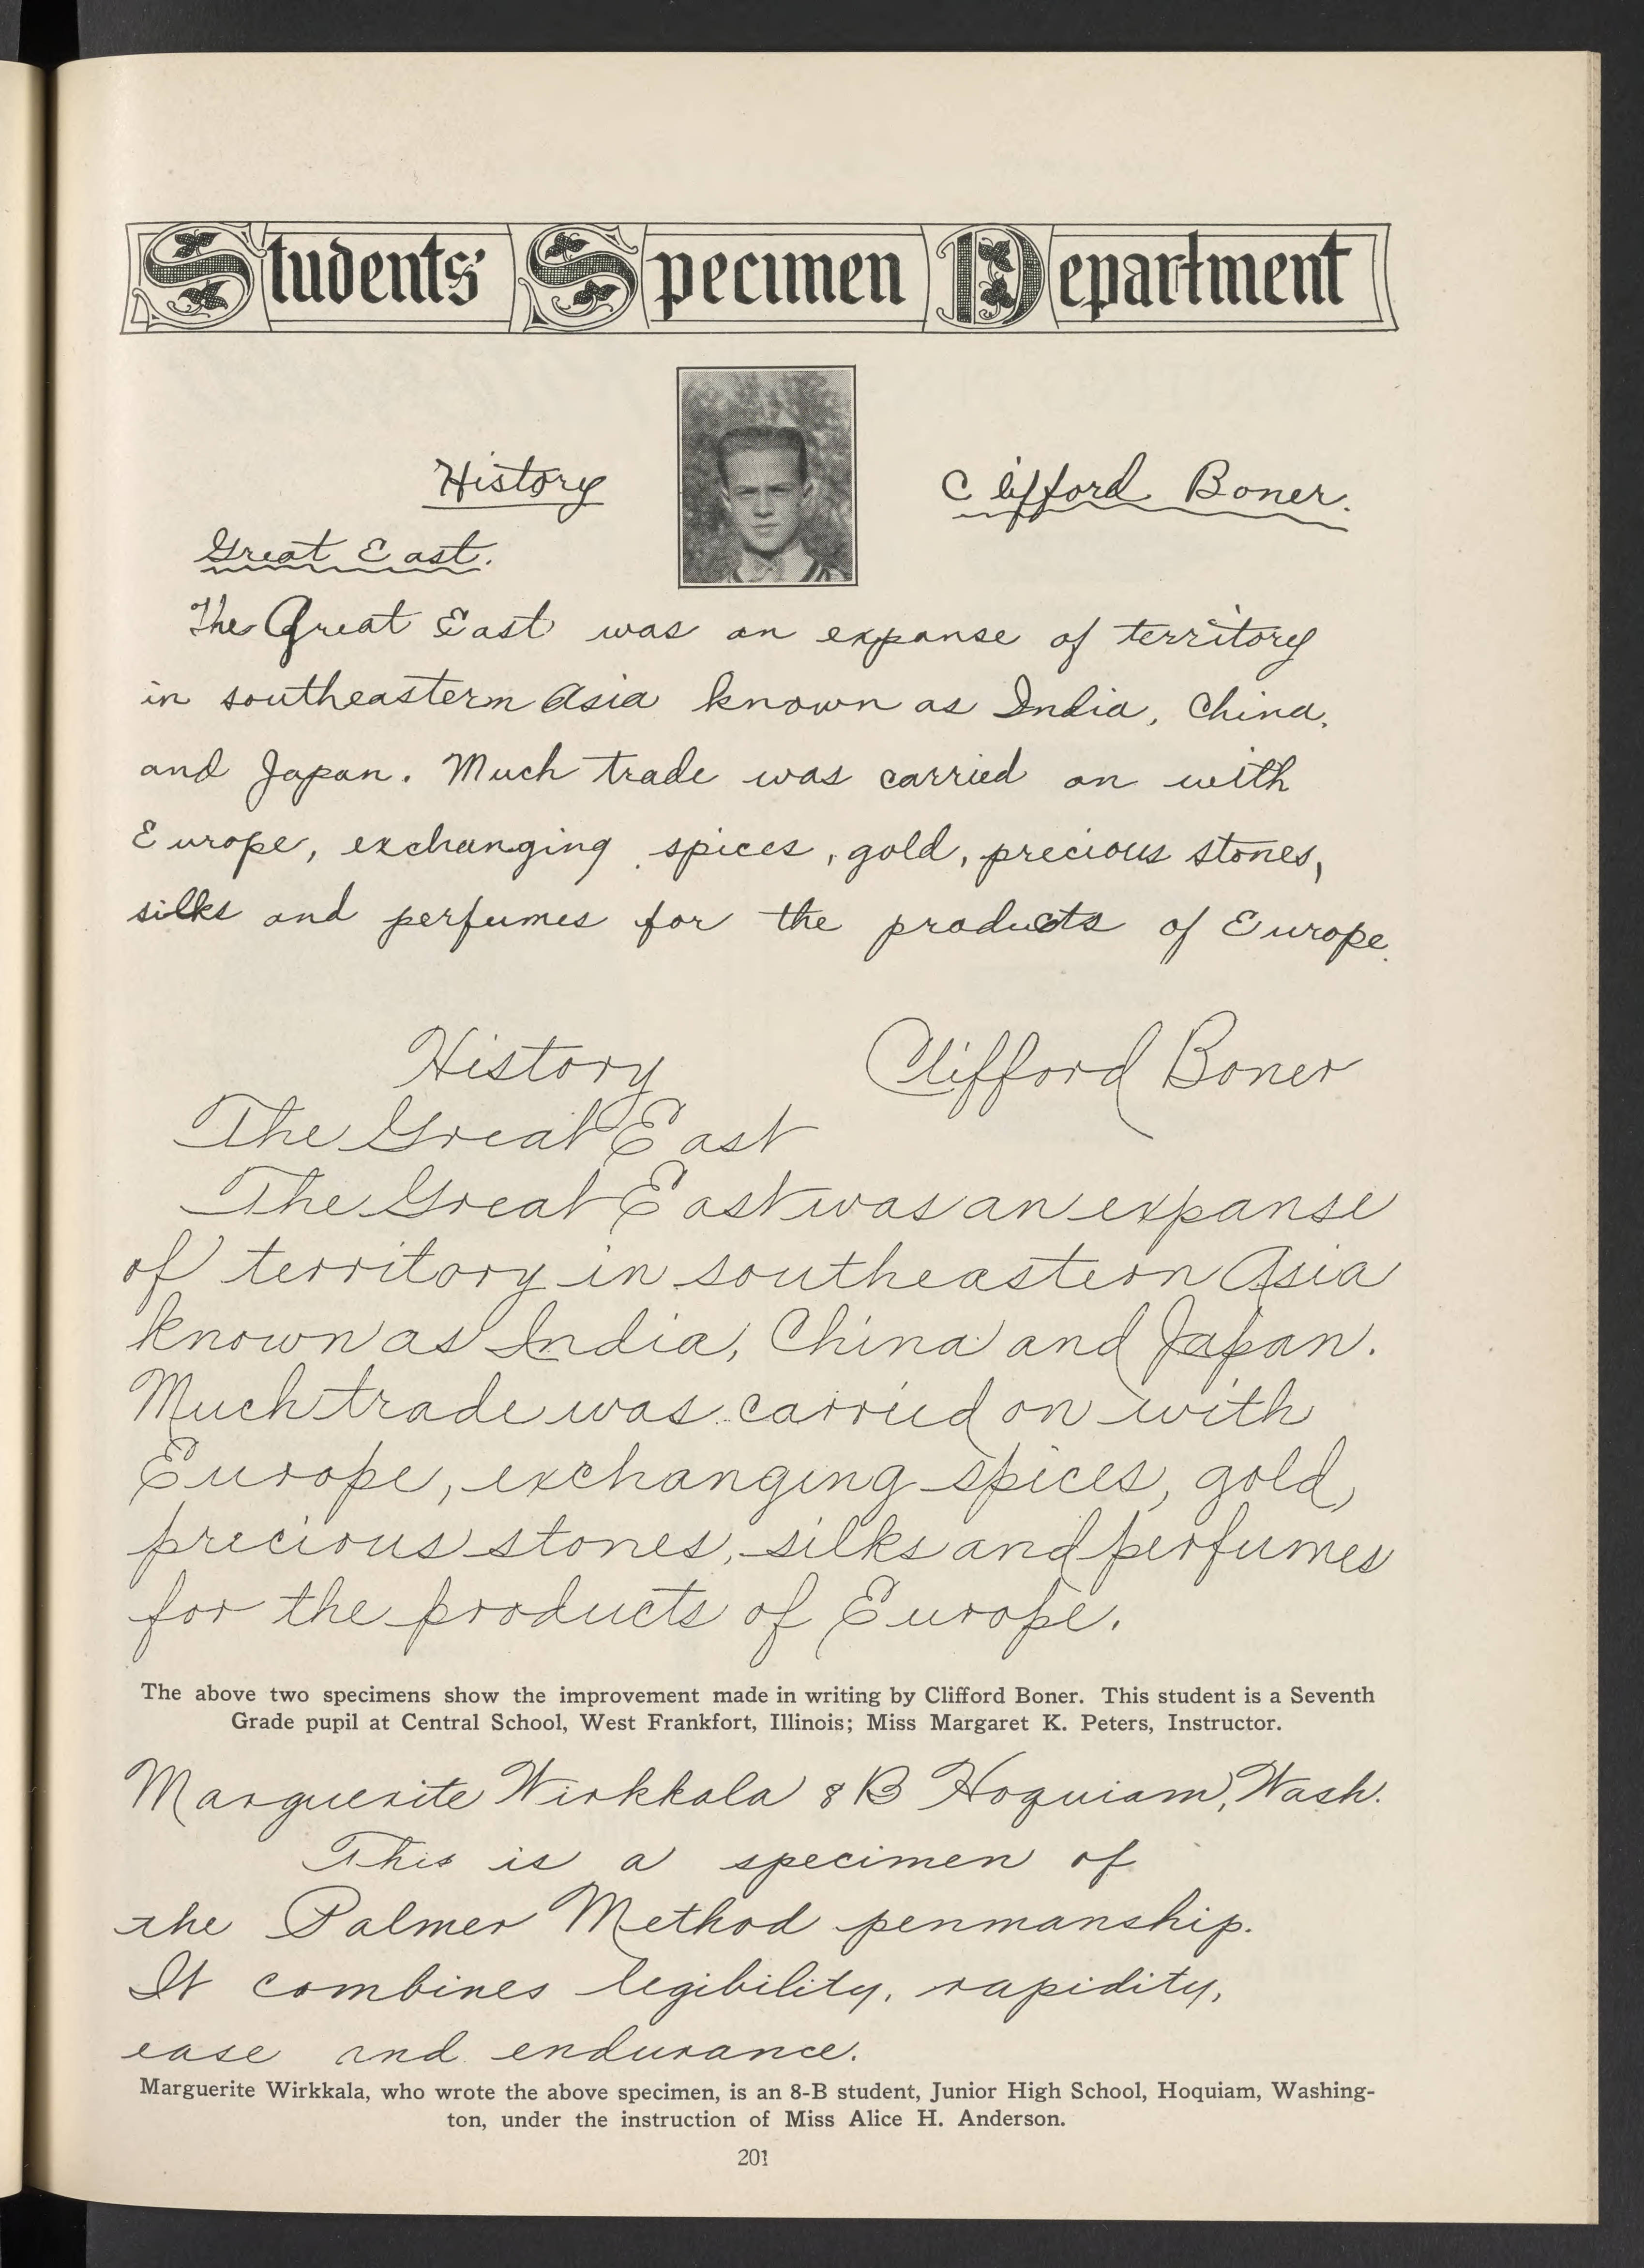 Students' Specimen Department
History
Clifford Boner.
Great East.
The Great East was an expanse of territory
in southeastern Asia known as India, China,
and Japan. Much trade was carried on with
Europe, exchanging spices, gold, precious stones,
silks and perfumes for the products of Europe.
History Clifford Boner
The Great East
The Great East was an expanse
of territory in southeastern Asia
known as India, China and Japan.
Much trade was carried on with
Europe, exchanging spices, gold,
precious stones, silks and perfumes
for the products of Europe.
The above two specimens show the improvement made in writing by Clifford Boner. This student is a Seventh
Grade pupil at Central School, West Frankfort, Illinois; Miss Margaret K. Peters, Instructor.
Marguerite Wirkkala 8 B Hoquiam, Wash.
This is a specimen of
the Palmer Method penmanship.
It combines legibility, rapidity,
ease and endurance.
Marguerite Wirkkala, who wrote the above specimen, is an 8-B student, Junior High School, Hoquiam, Washing-
ton, under the instruction of Miss Alice H. Anderson.
201